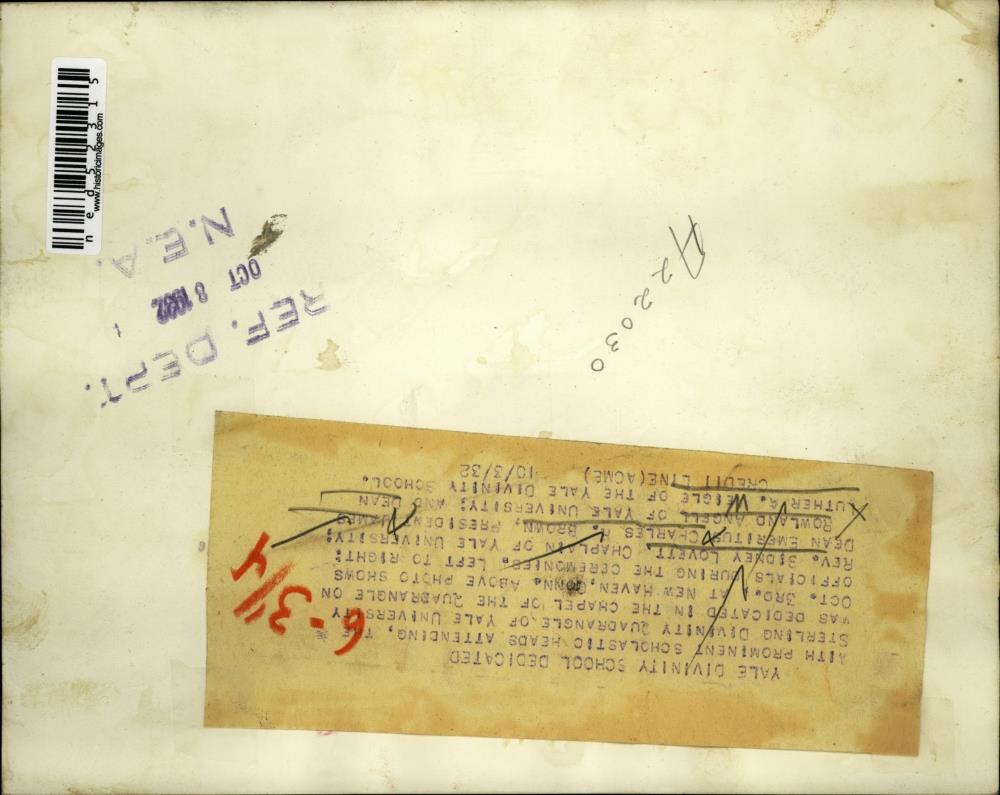 ned52315
www.historicimages.com
N.E.A.
OCT 8 1932
REF. DEPT.
A22030
6-3/4
YALE DIVINITY SCHOOL DEDICATED
WITH PROMINENT SCHOLASTIC HEADS ATTENDING, THE
STERLING DIVINITY QUADRANGLE OF YALE UNIVERSITY
WAS DEDICATED IN THE CHAPEL OF THE QUADRANGLE ON
OCT. 3RD. AT NEW HAVEN, CONN. ABOVE PHOTO SHOWS
OFFICIALS DURING THE CEREMONIES. LEFT TO RIGHT:
REV. SIDNEY LOVETT CHAPLAIN OF YALE UNIVERSITY:
DEAN EMERITUS CHARLES R. BROWN, PRESIDENT JAMES
ROWLAND ANGELL OF YALE UNIVERSITY: AND DEAN
LUTHER A. WEIGLE OF THE YALE DIVINITY SCHOOL.
CREDIT LINE(ACME) 10/3/32